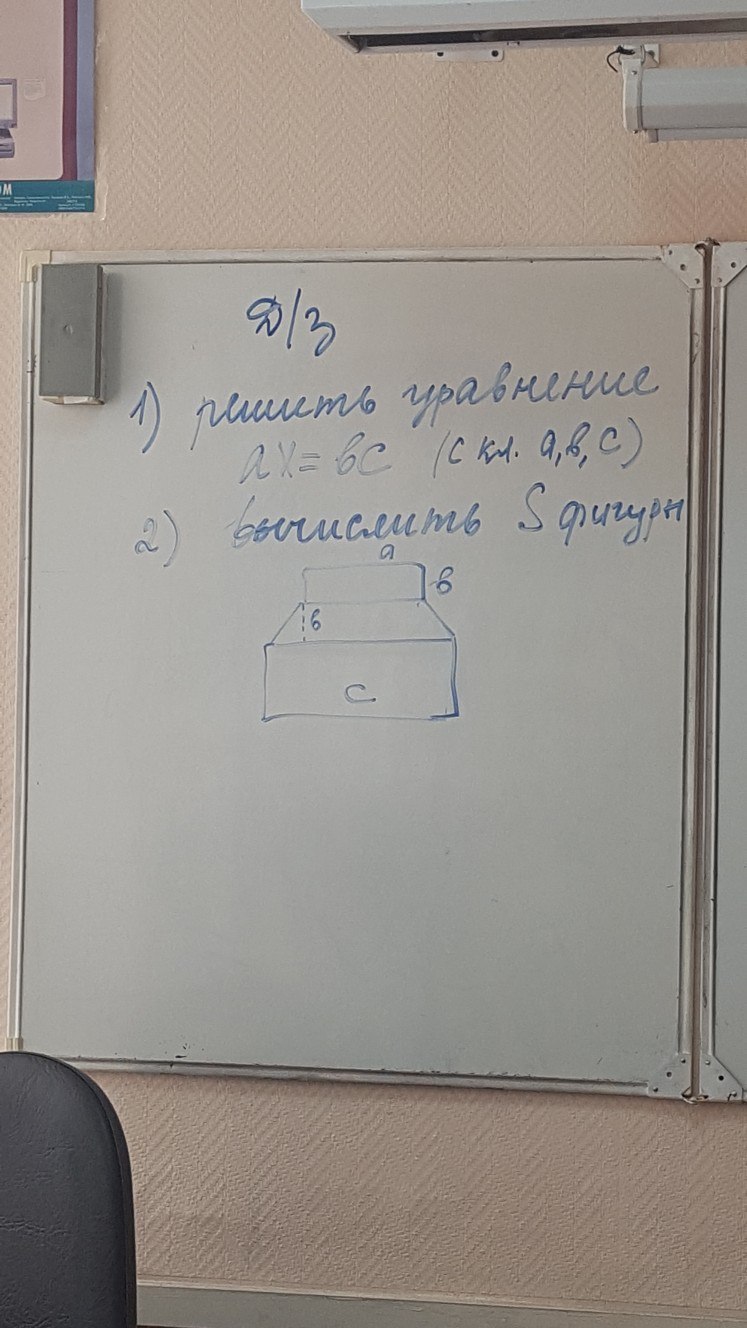 ОМ
Д/з
1) решить уравнение
ax = bc (с кл. a, b, c)
2) вычислить S фигуры
a
b
b
c